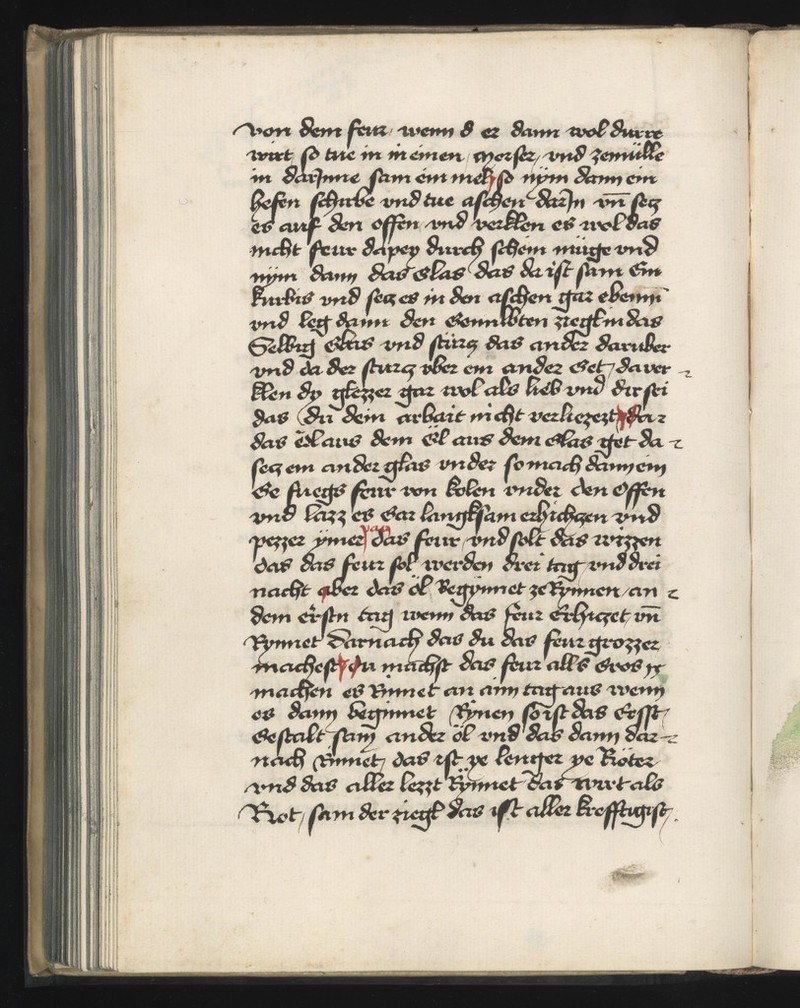 von dem feur / wenn d er dann wol durre
wirt so tue in in einen / morser / vnd zemülle
in darJnne sam ein mel / so nÿm dann ein
hefen scherbe vnd tue aschen darJn vn̄ secz
es auf den offen / vnd verklen es wol das
nicht feur dapey durch schein müge vnd
nÿm dann das Glas das da ist sam Ein
kurbis vnd secz es in den aschen gar ebenn
vnd leg dann den Genulbten ziegl in das
Selbig Glas vnd stürcz das ander daruber
vnd da der sturcz vber ein ander Get / da ver-
klen dy glezzer gar wol als lieb vnd dir sei
das du dein arbait nicht verliezezt / dar-
das öl aus dem öl aus dem Glas get da-
secz ein ander glas vnder so mach dann ein
Ge fuegs feur von kolen vnder den Offen
vnd lazz es Gar langksam erhiczen vnd
pezzer ÿmer das feur / vnd solt das wizzen
das das feur sol werden drei tag vnd drei
nacht aber das öl Begynnet ze Rynnen / an-
dem erstn tag wenn das feur Erhiczet vn̄
Rynnet Darnach das du das feur grozzer
machest / du machst das feur alls Gros
machen es Rinnet an ainn tag aus wenn
es dann beginnet Rynen so ist das Erst /
Gestalt sam ander öl vnd das dann dar-
nach Rinnet / das ist ye lenger ye Röter
vnd das aller lezzt Rÿnnet das wirt als
Rot / sam der ziegl das ist aller krefftigist /.